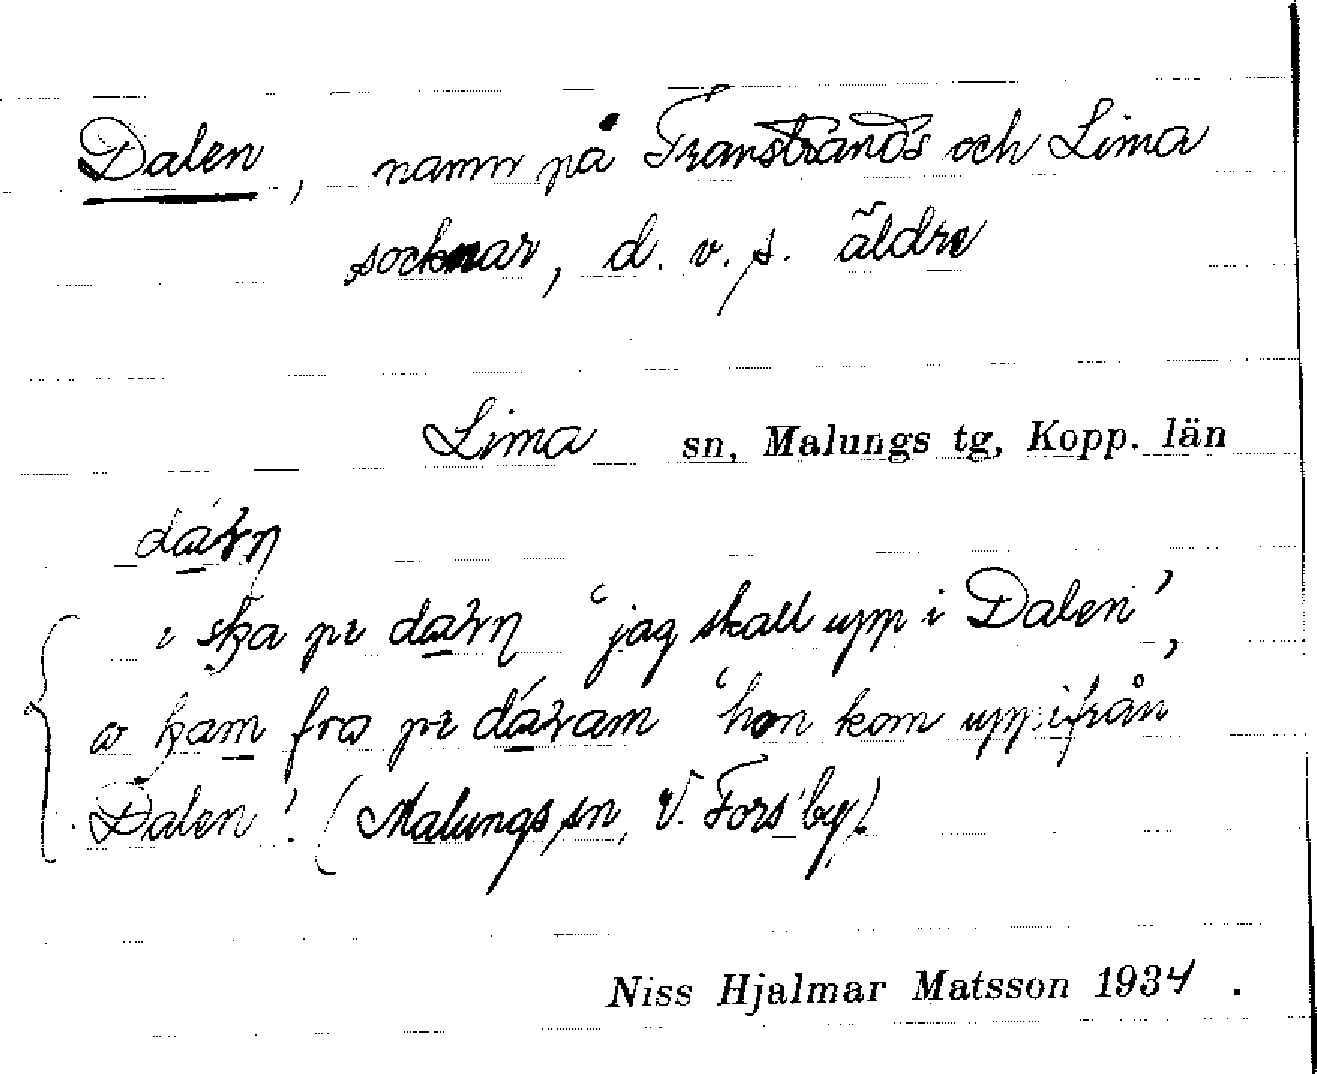 Dalen, namn på Transtrands och Lima
socknar, d. v. s. äldre
Lima sn, Malungs tg, Kopp. län
ska 'jag skall upp i Dalen',
fra 'hon kom uppifrån
Dalen'. (Malungs sn, V. Fors by).
Niss Hjalmar Matsson 1934.